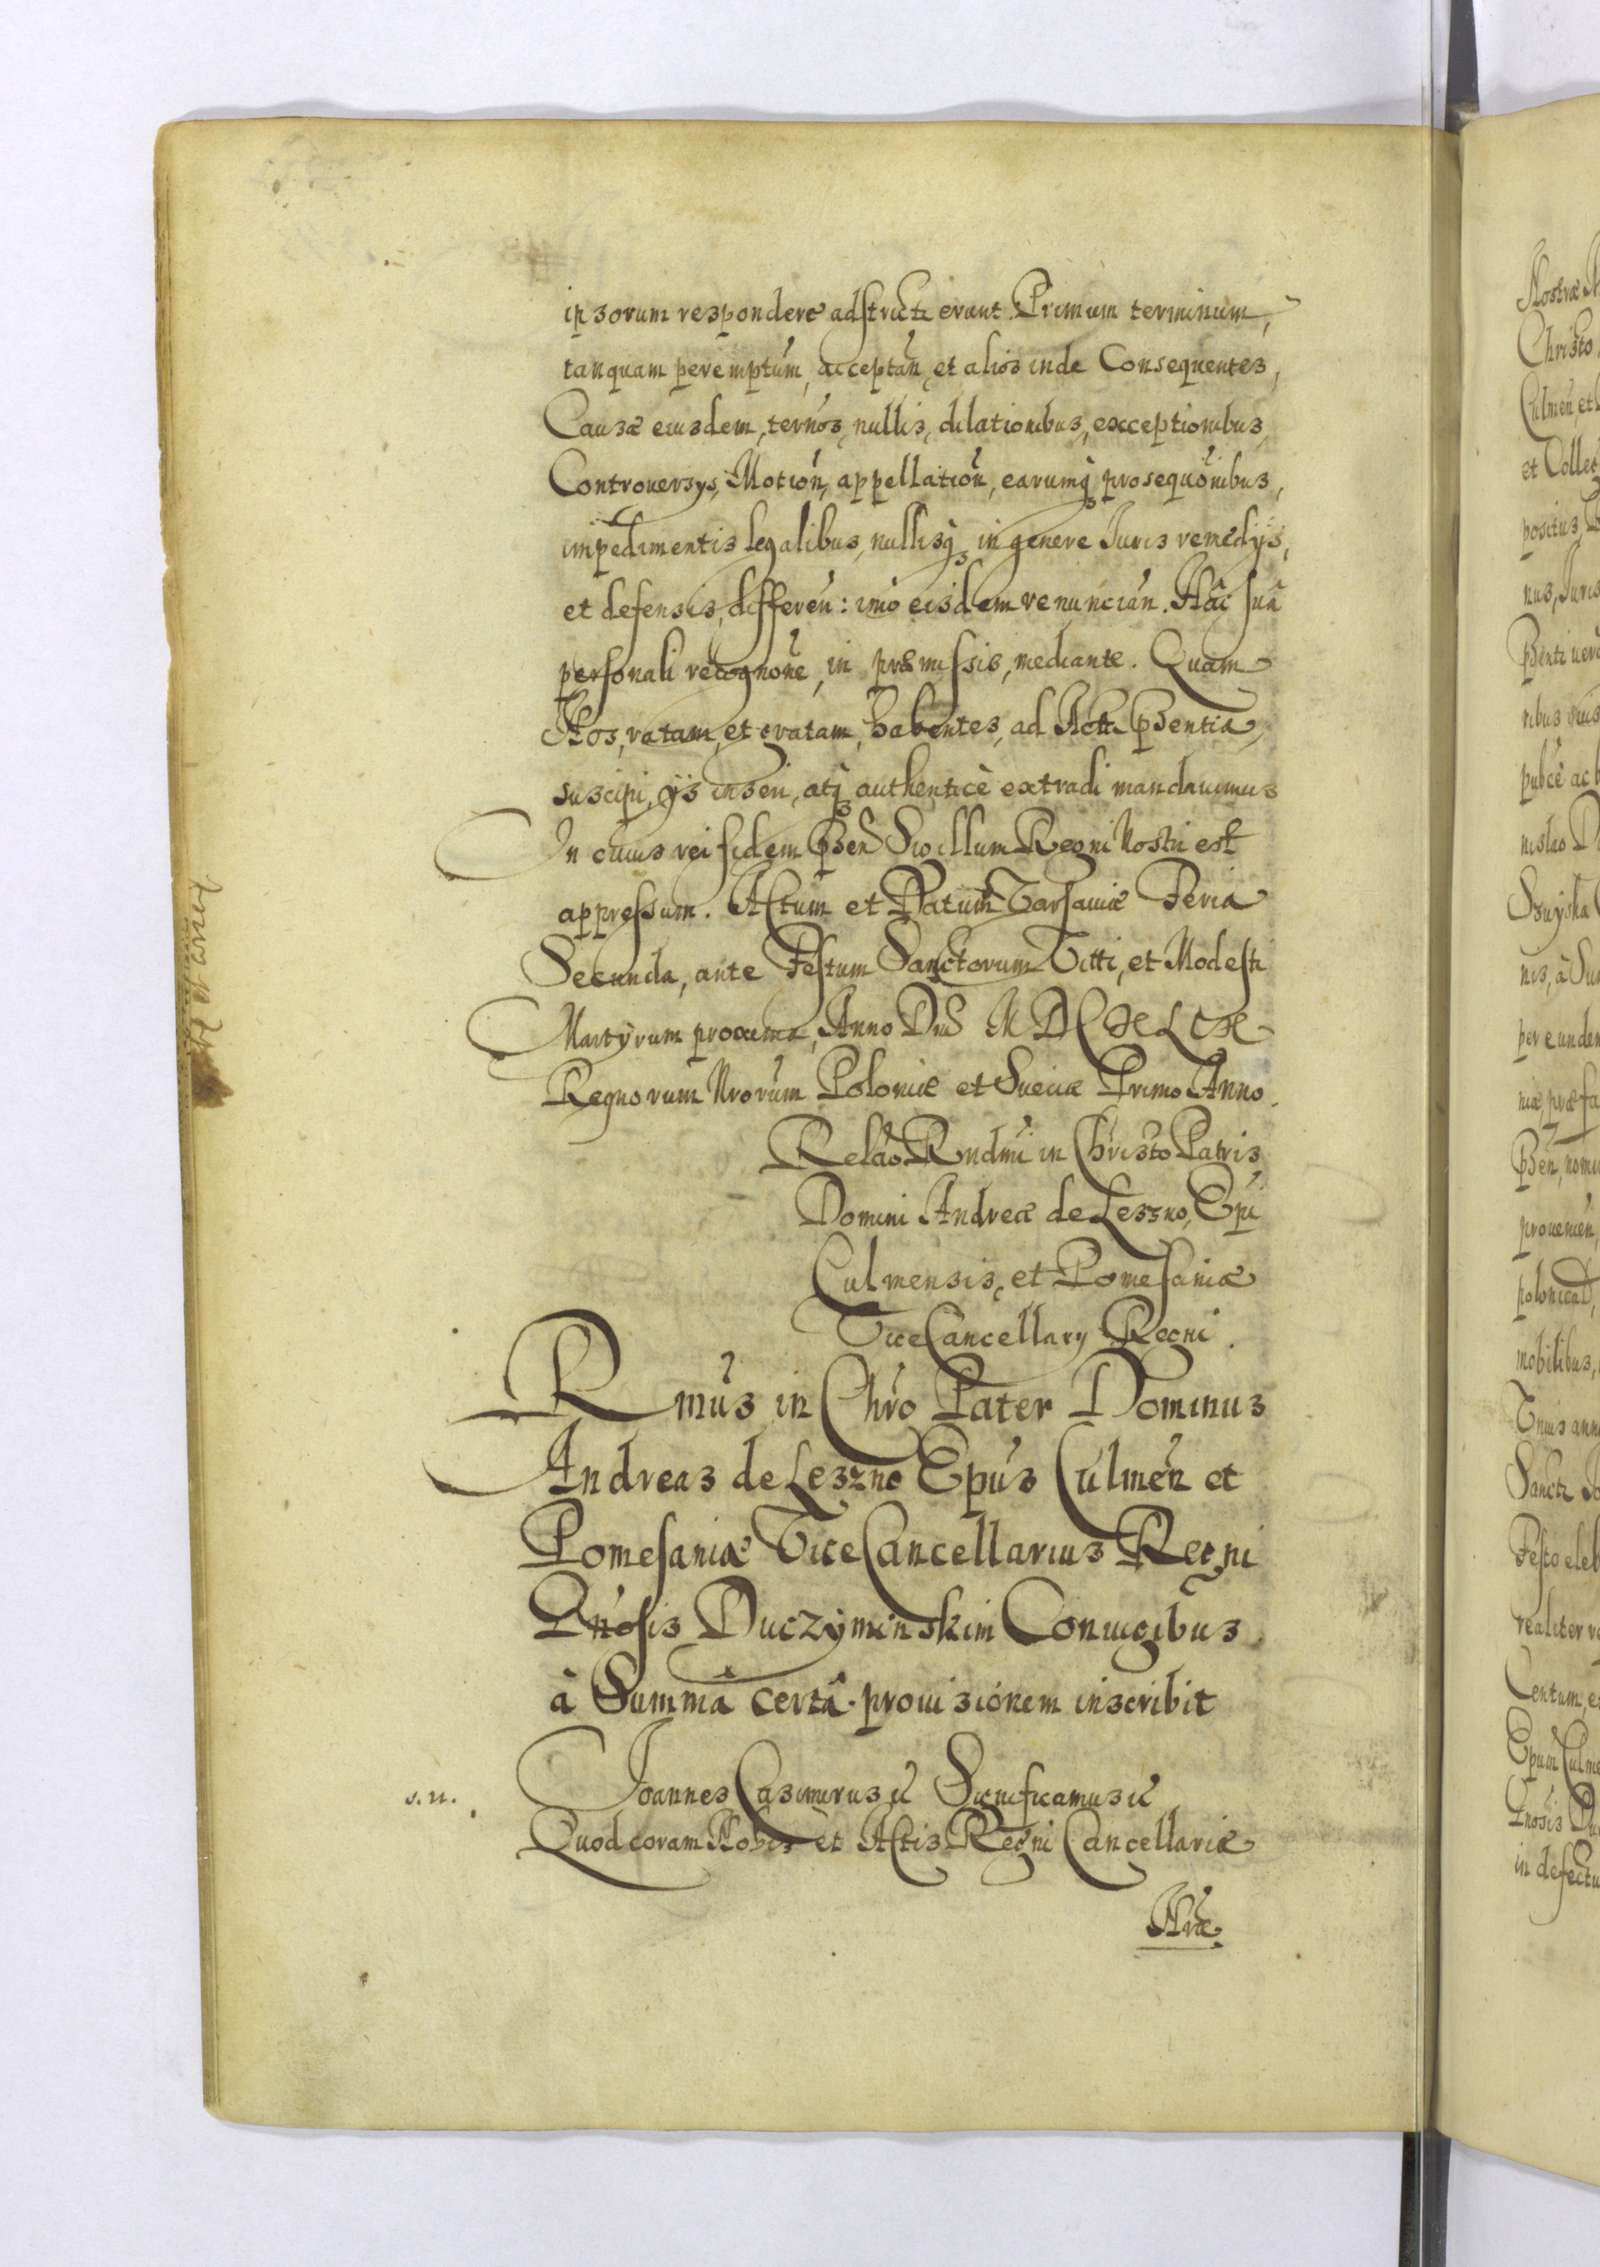 ipsorum respondere adstricti erunt. Primum terminum,
tanquam peremptum, acceptan, et alios inde Consequentes,
Causæ eiusdem, ternos, nullis, dilationibus, exceptionibus,
Controversys, Motion, appellation, earumq prosequonibus,
impedimentis legalibus, nullisq in genere Juris remedys,
et defensis, differen: imo eisdem renuncian. Hac sua
personali recognone, in præmissis, mediante. Quam
Nos, ratam, et gratam, habentes, ad Acta psentia,
suscipi, ijs inseri, atq authenticè extradi mandavimus
In cuius rei fidem psen Sigillum Regni Nostri est
appressum. Actum et Datum Varsaviæ Feria
Secunda, ante Festum Sanctorum Vitti, et Modesti
Martyrum proxima, Anno Dni MDCXLIX
Regnorum Nrorum Poloniæ et Sueciæ Primo Anno.
Relao Rndmi in Christo Patris
Domini Andreæ de Leszno, Epi
Culmensis, et Pomesaniæ
ViceCancellary Regni.
Rmus in Chro Pater Dominus
Andreas de Leszno Epus Culmen et
Pomesaniæ ViceCancellarius Regni
Gnosis Duczyminskim Coniugibus
à Summâ certâ provisionem inscribit
s. n.
Joannes Casimirus etc Significamus etc
Quod coram Nobis et Actis Regni Cancellariæ
Nræ
Nostræ
Christo
Culmen, et
et Colle
positus,
nus, Juris